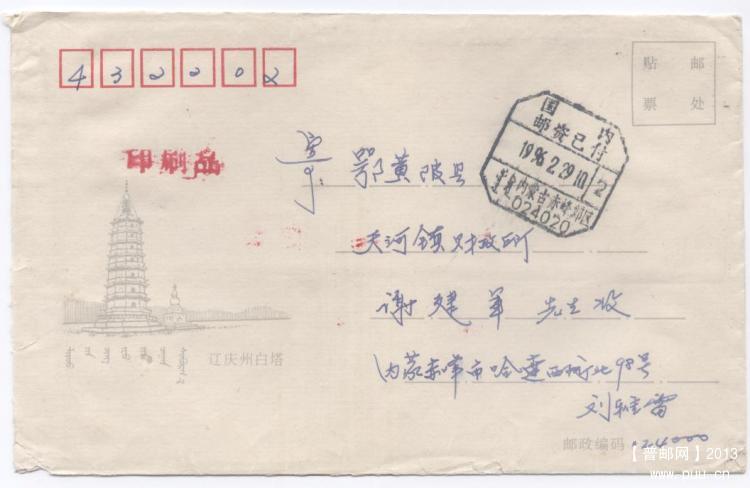 432202
贴 邮
票 处
国 内
邮资已付
1996.2.29.10 2
内蒙古赤峰邮区
024020
印刷品
寄:
鄂黄陂县
天河镇财政所
谢建军 先生收
内蒙赤峰市哈达西街北98号
刘
雷
辽庆州白塔
邮政编码 024000
【普邮网】2013
www.puu.cn